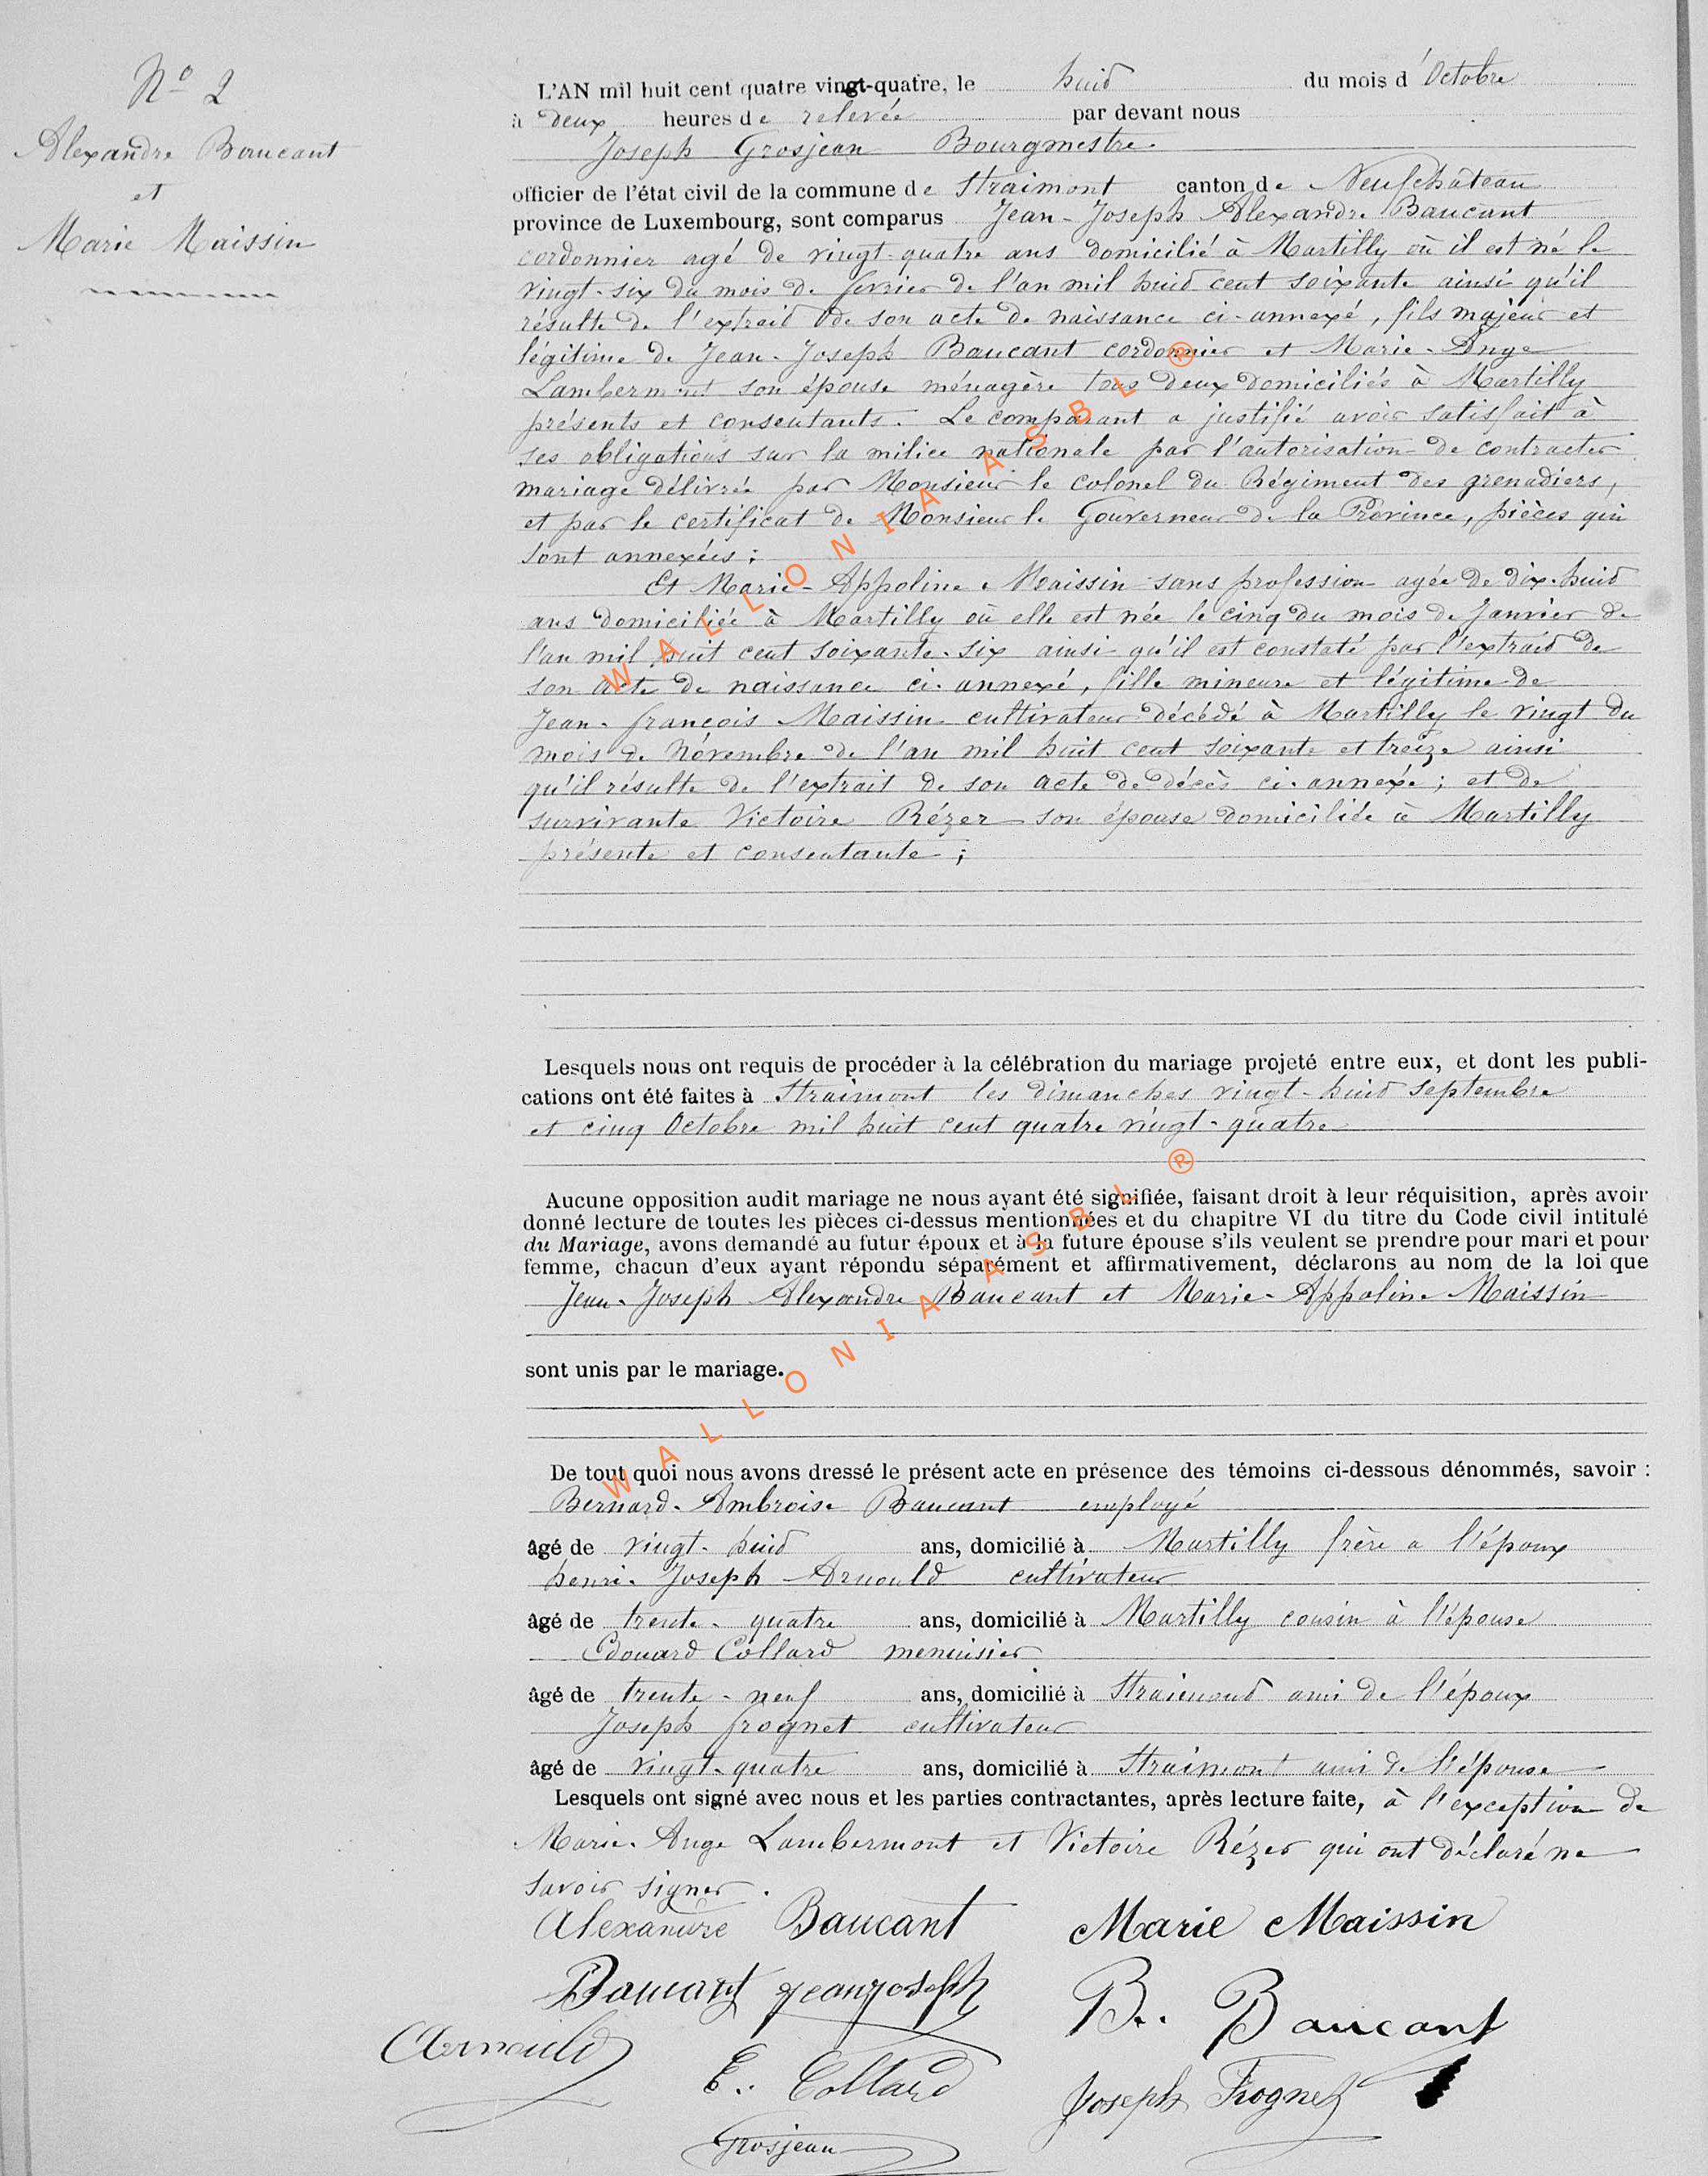 Nº 2
Alexandre Baucant
et
Marie Maissin
L'AN mil huit cent quatre vingt-quatre, le huit du mois d'Octobre
à deux heures de relevée par devant nous
Joseph Grosjean Bourgmestre
officier de l'état civil de la commune de Straimont canton de Neufchâteau
province de Luxembourg, sont comparus Jean-Joseph Alexandre Baucant
cordonnier agé de vingt-quatre ans domicilié à Martilly où il est né le
vingt-six du mois de fevrier de l'an mil huit cent soixante ainsi qu'il
résulte de l'extrait de son acte de naissance ci-annexé, fils majeur et
légitime de Jean-Joseph Baucant cordonnier et Marie-Ange
Lambermont son épouse ménagère tous deux domiciliés à Martilly
présents et consentants. Le comparant a justifié avoir satisfait à
ses obligations sur la milice nationale par l'autorisation de contracter
mariage délivrée par Monsieur le Colonel du Régiment des grenadiers,
et par le certificat de Monsieur le Gouverneur de la Province, pièces qui
sont annexées ;
Et Marie-Appoline Maissin sans profession agée de dix-huit
ans domiciliée à Martilly où elle est née le cinq du mois de Janvier de
l'an mil huit cent soixante-six ainsi qu'il est constaté par l'extrait de
son acte de naissance ci-annexé, fille mineure et légitime de
Jean-françois Maissin cultivateur décédé à Martilly le vingt du
mois de Novembre de l'an mil huit cent soixante et treize ainsi
qu'il résulte de l'extrait de son acte de décès ci-annexé ; et de
survivante Victoire Rézer son épouse domiciliée à Martilly
présente et consentante ;
Lesquels nous ont requis de procéder à la célébration du mariage projeté entre eux, et dont les publi-
cations ont été faites à Straimont les dimanches vingt-huit Septembre
et cinq Octobre mil huit cent quatre vingt-quatre
Aucune opposition audit mariage ne nous ayant été signifiée, faisant droit à leur réquisition, après avoir
donné lecture de toutes les pièces ci-dessus mentionnées et du chapitre VI du titre du Code civil intitulé
du Mariage, avons demandé au futur époux et à la future épouse s'ils veulent se prendre pour mari et pour
femme, chacun d'eux ayant répondu séparément et affirmativement, déclarons au nom de la loi que
Jean-Joseph Alexandre Baucant et Marie-Appoline Maissin
sont unis par le mariage.
De tout quoi nous avons dressé le présent acte en présence des témoins ci-dessous dénommés, savoir :
Bernard-Ambroise Baucant employé
âgé de vingt-huit ans, domicilié à Martilly frère a l'époux
henri-Joseph Arnould cultivateur
âgé de trente-quatre ans, domicilié à Martilly cousin à l'épouse
Edouard Collard menuisier
âgé de trente-neuf ans, domicilié à Straimont ami de l'époux
Joseph frognet cultivateur
âgé de vingt-quatre ans, domicilié à Straimont ami de l'épouse
Lesquels ont signé avec nous et les parties contractantes, après lecture faite, à l'exception de
Marie-Ange Lambermont et Victoire Rézer qui ont déclaré ne
savoir signer.
Alexandre Baucant Marie Maissin
Baucant jeanjoseph B. Baucant
Arnould E. Collard Joseph Frognet
Grosjean
WALLONIA ASBL ®
WALLONIA ASBL ®